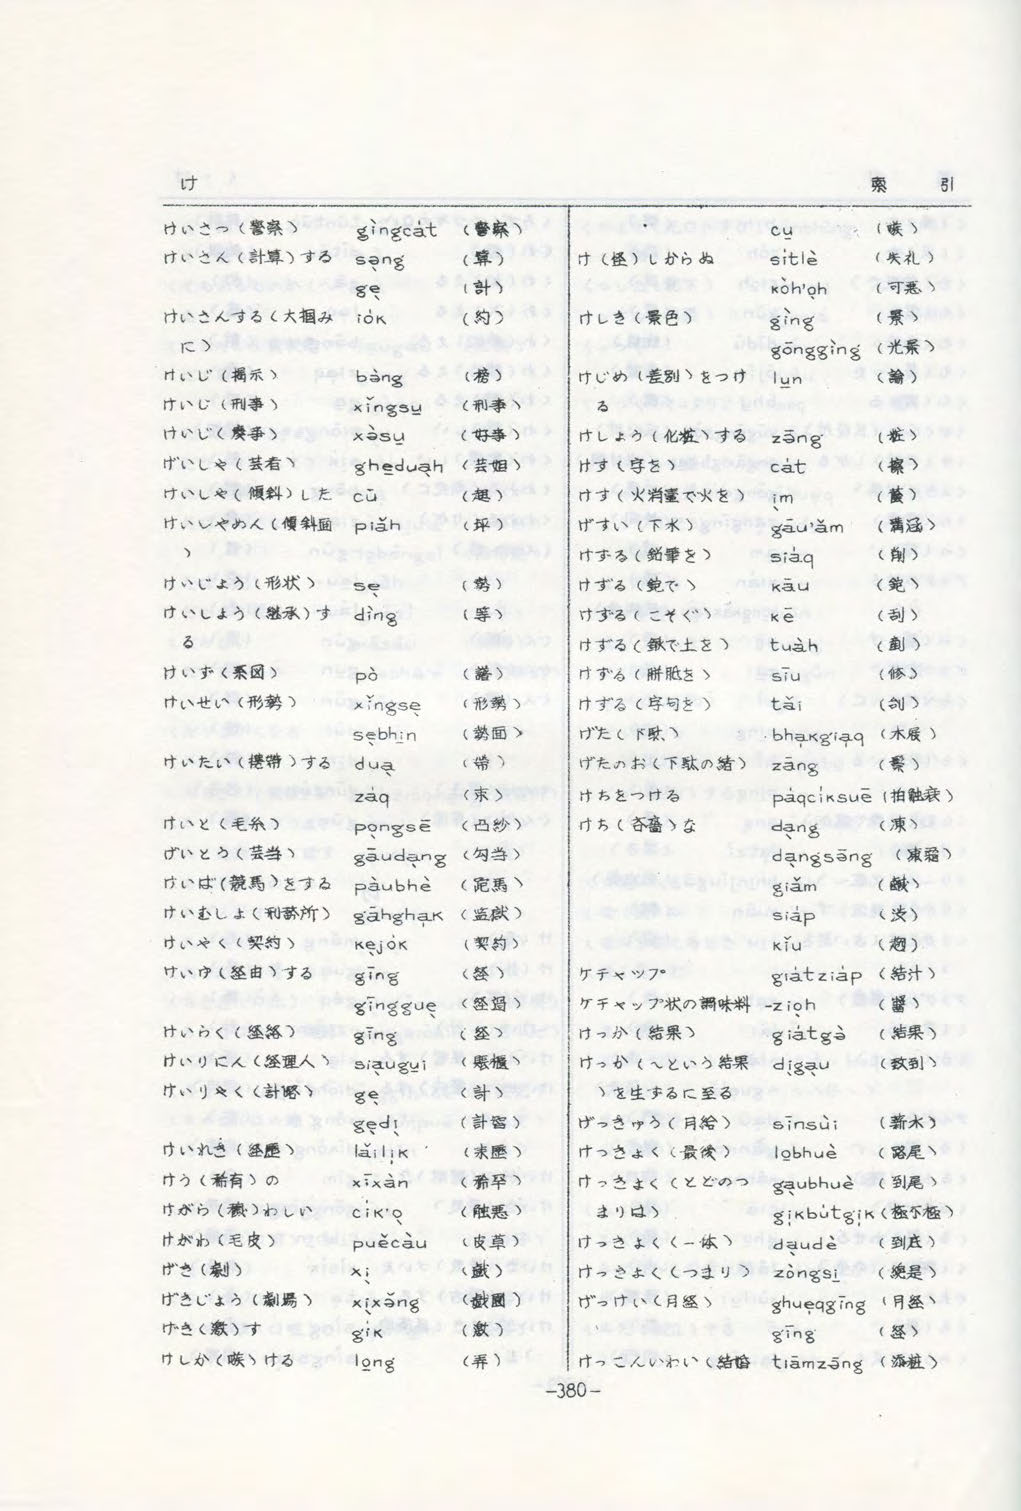 け
索 引
けいさつ(警察) gìngcat (警察)
けいさん(計算)する sə̣ng (算)
gẹ (計)
けいさんする(大掴み iók (約)
に)
けいじ(掲示) bǎng (榜)
けいじ(刑事) xǐngsu̲ (刑事)
けいじ(慶事) xəsu̲ (好事)
げいしゃ(芸者) ghe̲duạh (芸妲)
けいしゃ(傾斜)した cū
けいしゃめん(傾斜面 piǎh (坪)
)
けいじょう(形状) sẹ (勢)
けいしょう(継承)す dìng (等)
る
けいず(系図) pò (譜)
けいせい(形勢) xǐngsẹ (形勢)
sẹbhi̲n (勢面)
けいたい(携帯)する duạ (帯)
záq (束)
けいと(毛糸) pọngsē (凸紗)
げいとう(芸当) gāudạng (勾当)
けいば(競馬)をする pàubhè (跑馬)
けいむしょ(刑務所) gāhghạk (監獄)
けいやく(契約) kẹjók (契約)
けいゆ(経由)する gīng (経)
gīngguẹ (経過)
けいらく(経絡) gīng (経)
けいりにん(経理人) siạugụi (賬櫃)
けいりゃく(計略) gẹ (計)
gẹdị (計智)
けいれき(経歴) lǎilịk (来歴)
けう(稀有)の xīxàn (稀罕)
けがら(穢)わしい cík'ọ (触悪)
けがわ(毛皮) puěcàu (皮草)
げき(劇) xị (戯)
げきじょう(劇場) xịxə̌ng (戯園)
げき(激)す gík (激)
けしか(嗾)ける lo̲ng (弄)
cu̲ (嗾)
け(怪)しからぬ sítlè (失礼)
kòh'ọh (可悪)
けしき(景色) gìng (景)
gōnggìng (光景)
けじめ(差別)をつけ lu̲n (論)
る
けしょう(化粧)する zāng (粧)
けす(字を) cát (擦)
けす(火消壷で火を) ịm
げすい(下水) gāu'ǎm (溝涵)
けずる(鉛筆を) siáq (削)
けずる(鉋で) kāu (鉋)
けずる(こそぐ) kē (刮)
けずる(鍬で土を) tuàh (剷)
けずる(胼胝を) sīu (修)
けずる(字句を) tǎi
げた(下駄) bhạkgiạq (木屐)
げたのお(下駄の緒) zāng
けちをつける páqcíksuē (拍触衰)
けち(吝嗇)な dạng (凍)
dạngsə̄ng (凍霜)
giǎm (鹹)
siáp (渋)
kǐu
ケチャップ giátziáp (結汁)
ケチャップ状の調味料 -ziọh (醤)
けっか(結果) giátgə (結果)
けっか(~という結果 dịgạu (致到)
)を生ずるに至る
げっきゅう(月給) sīnsùi (薪水)
けっきょく(最後) lo̲bhuè (路尾)
けっきょく(とどのつ gạubhuè (到尾)
まりは) gịkbútgịk (極不極)
けっきょく(一体) dạudè (到底)
けっきょく(つまり) zòngsi̲ (総是)
げっけい(月経) ghuẹqgīng (月経)
gīng (経)
けっこんいわい(結婚 tiāmzāng (添粧)
-380-